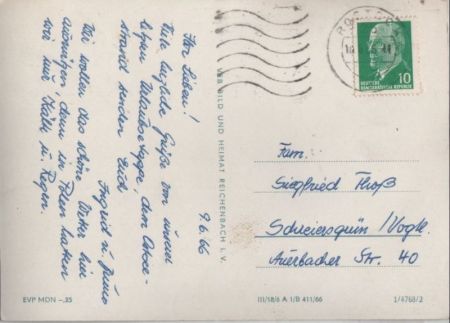 9.6.66
Ihr Lieben!
Viele herzliche Grüße von unserer
letzten Urlaubsetappe, dem Ostsee-
strand senden Euch
Ingrid u.
Wir wollen das schöne Wetter hier
ausnützen, denn in Polen hatten
wir nur Kälte u. Regen.
VEB BILD UND HEIMAT REICHENBACH I. V.
ROSTOCK
10
DEUTSCHE
DEMOKRATISCHE REPUBLIK
Fam.
Siegfried Floß
Schreiersgrün / Vogtl.
Auerbacher Str. 40
EVP MDN –,25
III/18/6 A 1/B 411/66
1/4768/2